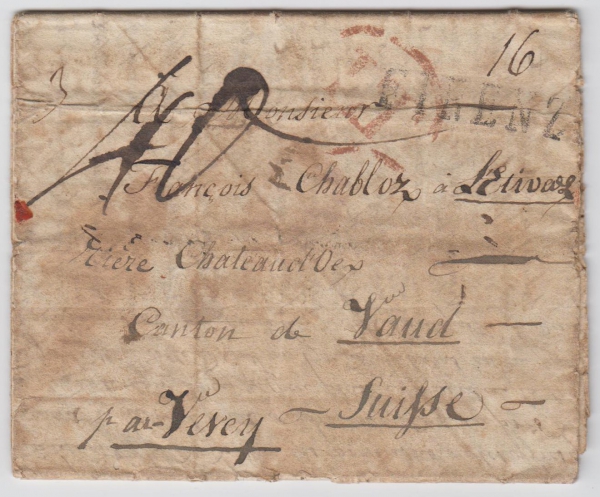 16
3
FIRENZ
A Monsieur
François Chabloz à L'Etivaz
rière Chateaud'Oex
Canton de Vaud
par Vevey - Suisse -